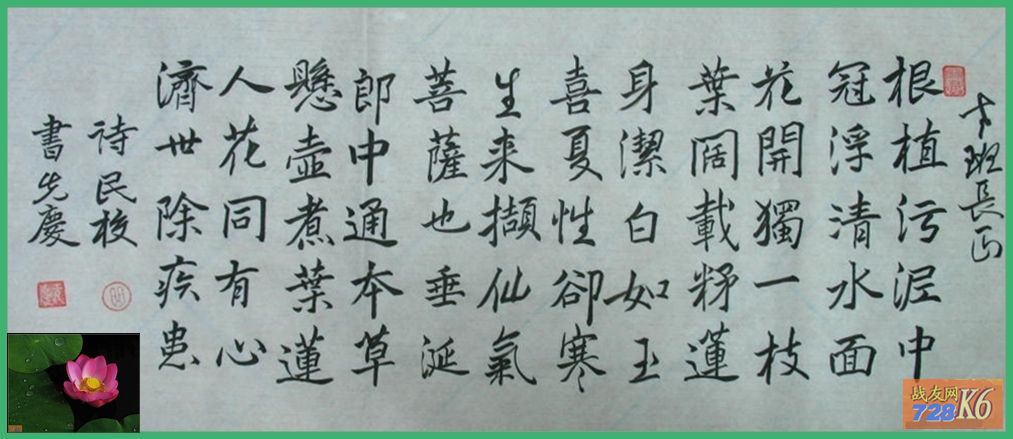 班長正
根植污泥中
冠浮清水面
花開獨一枝
葉闊載蓮
身潔白如玉
喜夏性卻寒
生来擷仙氣
菩薩也垂涎
郎中通本草
懸壺煮葉蓮
人花同有心
濟世除疾患
诗民校
書先慶
战友网
728K6